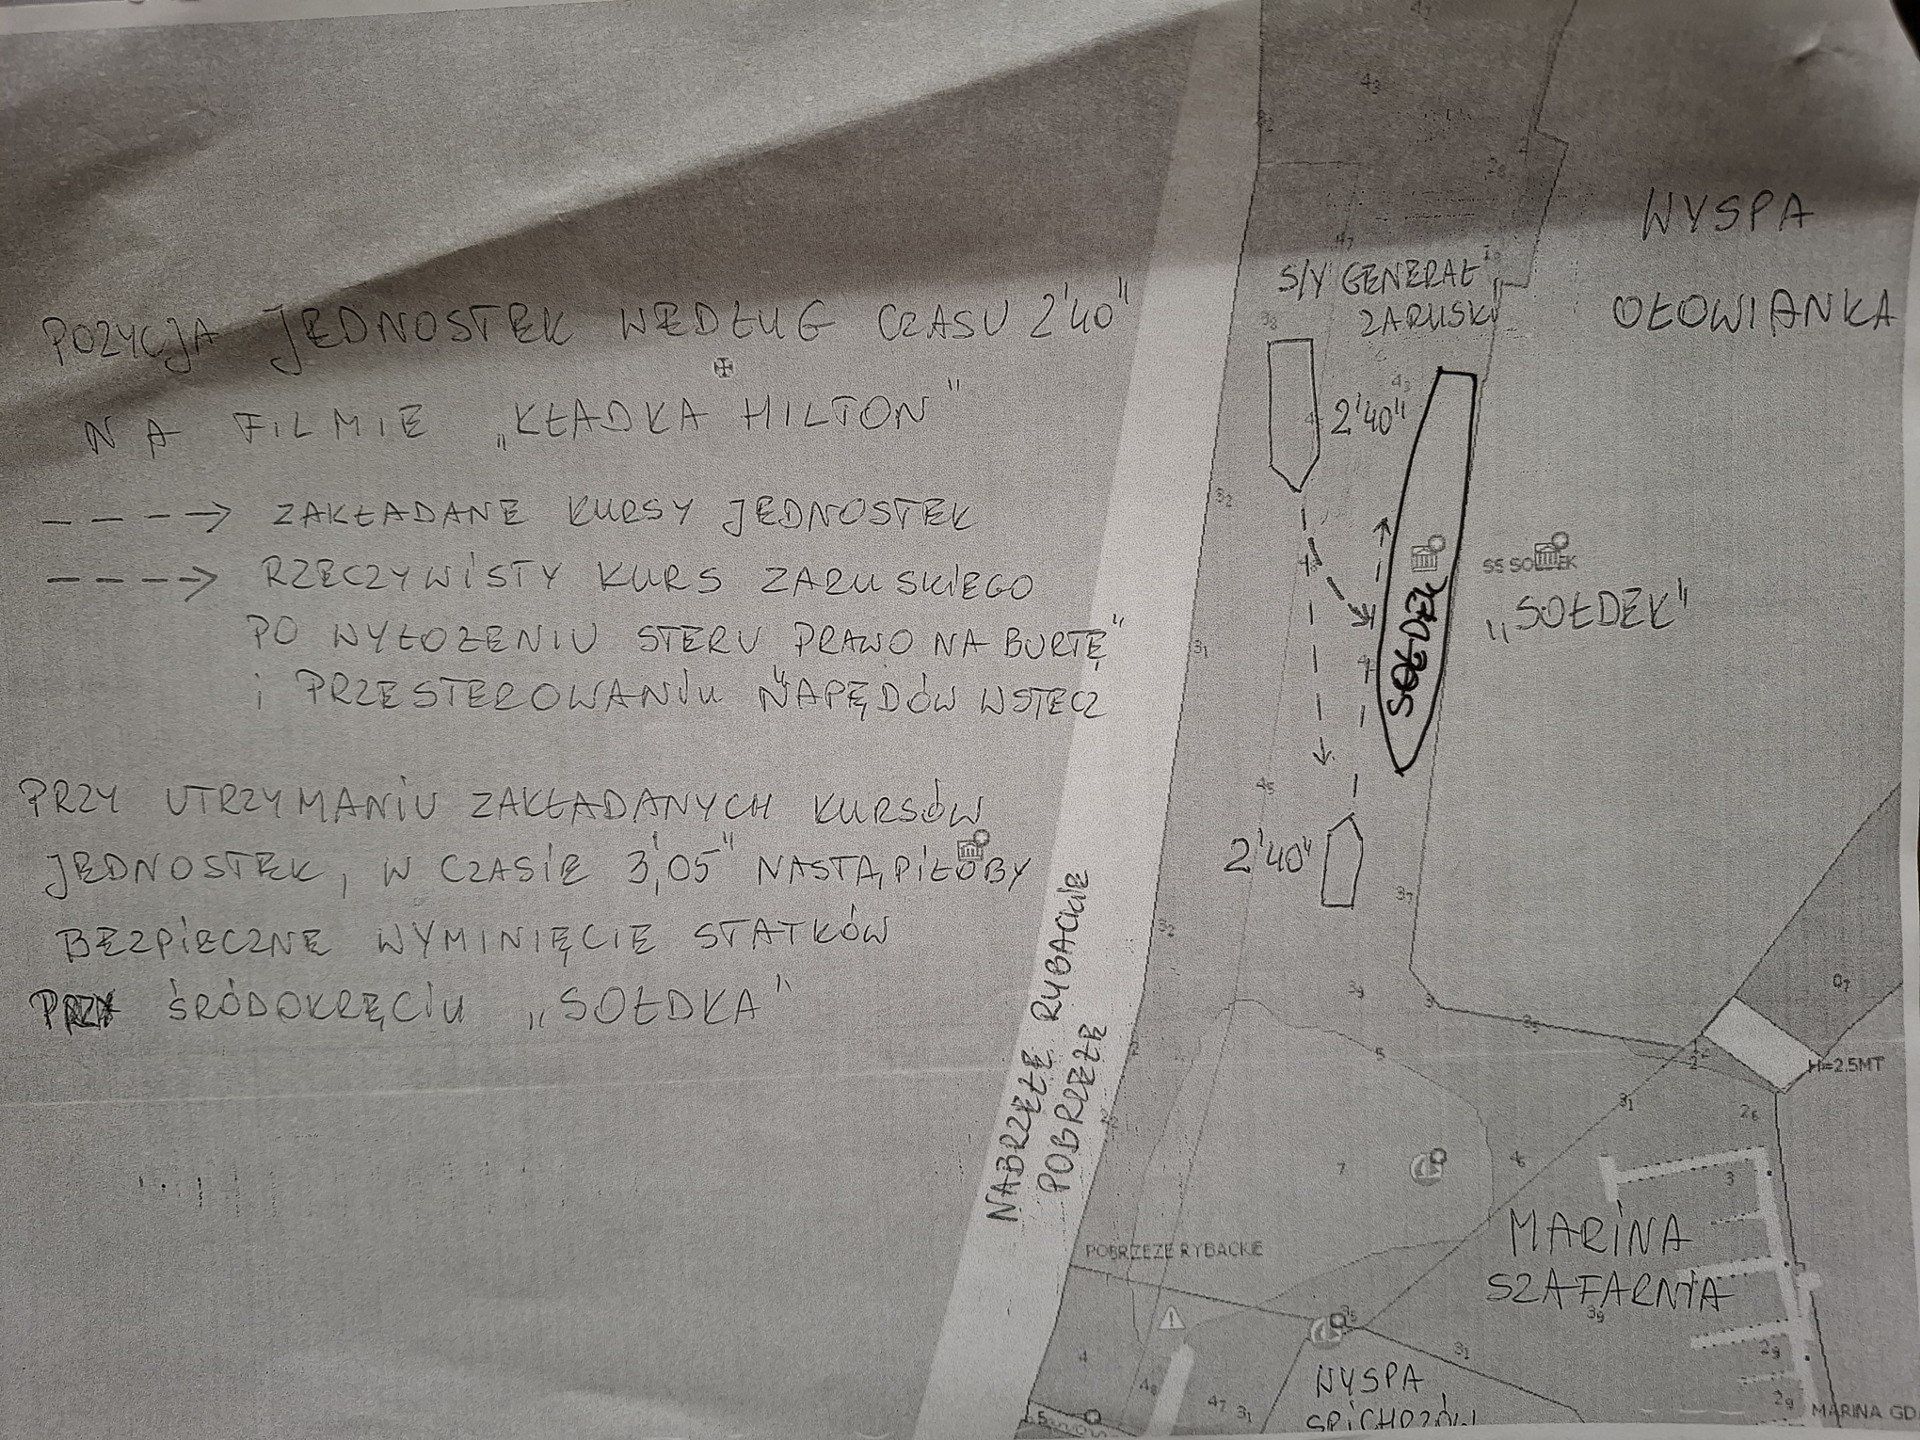 POZYCJA JEDNOSTEK WEDŁUG CZASU 2'40"
NA FILMIE „KŁADKA HILTON"
ZAKŁADANE KURSY JEDNOSTEK
RZECZYWISTY KURS ZARUSKIEGO
PO WYŁOŻENIU STERU PRAWO NA BURTĘ"
i PRZESTEROWANIU NAPĘDÓW WSTECZ
PRZY UTRZYMANIU ZAKŁADANYCH KURSÓW
JEDNOSTEK, W CZASIE 3,05" NASTĄPIŁOBY
BEZPIECZNE WYMINIĘCIE STATKÓW
PRZY ŚRÓDOKRĘCIU „SOŁDKA"
WYSPA
OŁOWIANKA
S/Y GENERAŁ
ZARUSKI
2'40"
SOŁDEK
SS SOŁDEK
„SOŁDEK"
2'40"
NABRZEŻE RYBACKIE
POBRZEŻE
H=2.5MT
POBRZEZE RYBACKIE
MARINA
SZAFARNIA
WYSPA
SPICHRZÓW
MARINA GD